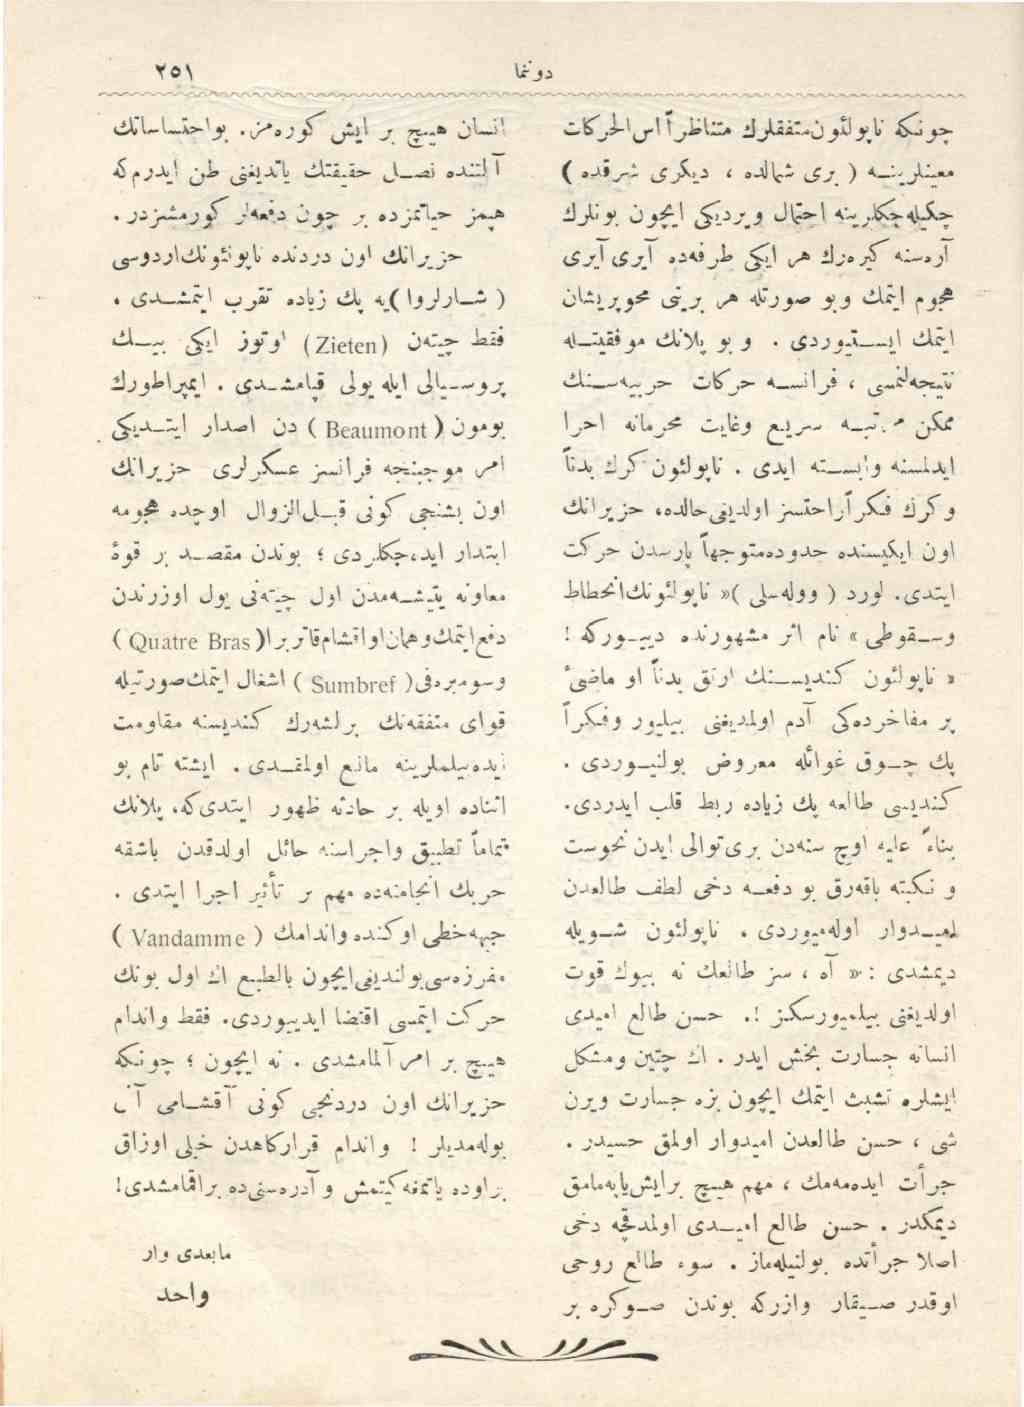 ٢٥١
دوننما
چونكه ناپولئون متفقلرك متناظراً اس الحركات
معينلرينه ( بری شمالده ، ديكری شرقده )
چكيله‌جكلرينه احتمال ويرديكی ايچون بونلرك
آره‌سنه كيره‌رك هر ايكی طرفه‌ده آيری آيری
هجوم ايتمك وبو صورتله هر برينی محوپريشان
ايتمك ايستيوردی . و بو پلانك موفقيتله
نتيجه‌لنمسی ، فرانسه حركات حربيه‌سنك
ممكن مرتبه سريع وغايت محرمانه اجرا
ايدلمسنه وابسته ايدی . ناپولئون كرك بدناً
وكرك فكراً راحتسز اولديغی حالده، حزيرانك
اون ايكيسنده حدوده متوجهاً پارسدن حركت
ايتدی. لورد ( ووله‌سلی )« ناپولئونك انحطاط
وسقوطی » نام اثر مشهورنده دييوركه !
« ناپولئون كنديسنك ارتق بدناً او ماضیٔ
پر مفاخرده‌كی آدم اولمديغنی بيليور وفكراً
پك چوق غوائله معروض بولنيوردی .
كنديسی طالعه پك زياده ربط قلب ايدردی.
بناءً عليه اوچ سنه‌دن بری توالی ايدن نحوست
و نكبته باقه‌رق بو دفعه دخی لطف طالعدن
اميدوار اوله‌ميوردی . ناپولئون شويله
ديمشدی : « آه ، سز طالعك نه بيوك قوت
اولديغنی بيلميورسكز !. حسن طالع اميدی
انسانه جسارت بخش ايدر . اك چتين ومشكل
ايشلره تشبث ايتمك ايچون بزه جسارت ويرن
شی ، حسن طالعدن اميدوار اولمق حسيدر .
جرأت ايده‌مه‌مك ، مهم هيچ برايش ياپه‌مامق
ديمكدر . حسن طالع اميدی اولمدقچه دخی
اصلا جرأتده بولنيله‌ماز . سوء طالع روحی
اوقدر صيقار وازركه بوندن صوكره بر
انسان هيچ بر ايش كوره‌مز. بواحتساساتك
آلتنده نصل حقيقتك ياتديغنی ظن ايدرم‌كه
هپمز حياتمزده بر چون دفعه‌لر كورمشزدر .
حزيرانك اون دردنده ناپولئونك اردوسی
( شارلروا )يه پك زياده تقرب ايتمشدی .
فقط چيته‌ن (Zieten) اوتوز ايكی بيك
پروسيالی ايله يولی قپامشدی . ايمپراطورك
بومون ( Beaumont ) دن اصدار ايتديكی
امر موجبنجه فرانسز عسكرلری حزيرانك
اون بشنجی كونی قبل‌الزوال اوچده هجومه
ابتدار ايده‌جكلردی ؛ بوندن مقصد بر قوهٔ
معاونه يتيشمه‌دن اول چيته‌نی يول اوزرندن
دفع‌ايتمك وهمان او اقشام قاتربرا( Quatre Bras )
وسومبره‌فی( Sumbref ) اشغال ايتمك صورتيله
قوای متفقه‌نك برلشه‌رك كنديسنه مقاومت
ايده‌بيلملرينه مانع اولمقدی . ايشته تام بو
اثناده اويله بر حادثه ظهور ايتدی‌كه، پلانك
تماماً تطبيق واجراسنه حائل اولدقدن باشقه
حربك انجامنه‌ده مهم بر تأثير اجرا ايتدی .
جبهه‌خطی اوكنده واندامك ( Vandamme )
مفرزه‌سی بولنديغی ايچون بالطبع اك اول بونك
حركت ايتمسی اقتضا ايدييوردی. فقط واندام
هيچ بر امر آلمامشدی . نه ايچون ؛ چونكه
حزيرانك اون دردنجی كونی آقشامی آنی
بوله‌مديلر ! واندام قراركاهدن خيلی اوزاق
براوده ياتمغه كيتمش و آدره‌سنی‌ده براقمامشدی!
مابعدی وار
واحد